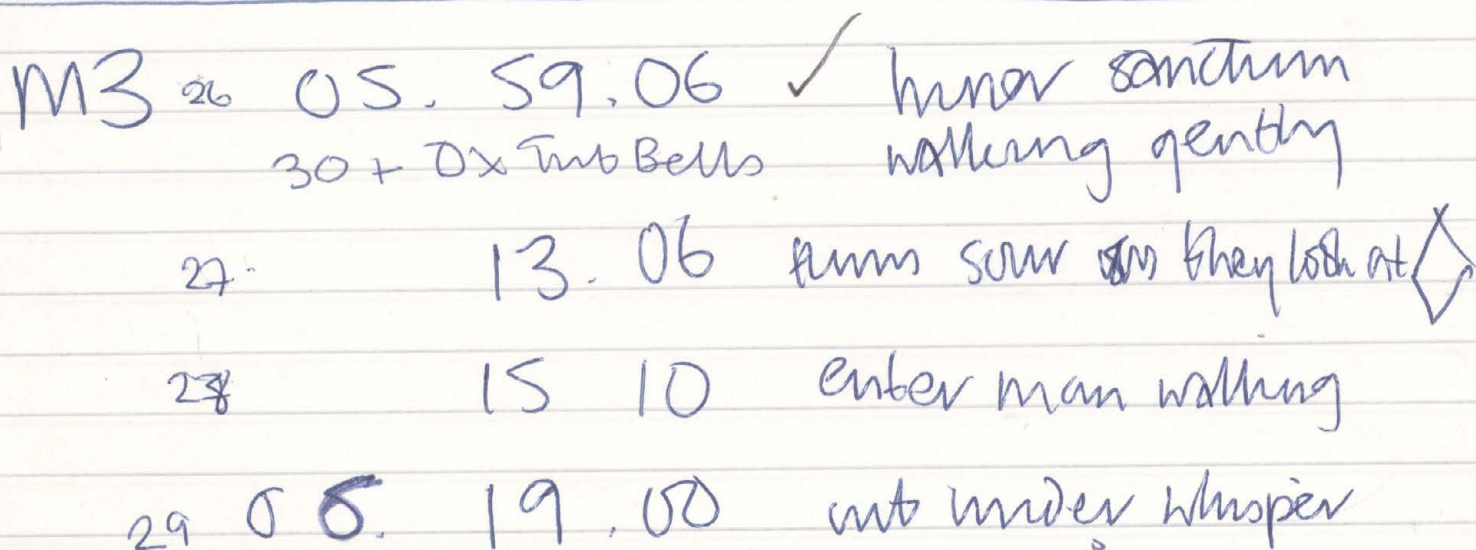 M3 26 05. 59.06 ✓ Inner sanctum
30 + Ox Tub Bells walking gently
27. 13. 06 turns sour as they look at
28 15 10 enter man walking
29 06. 19.00 out under whisper